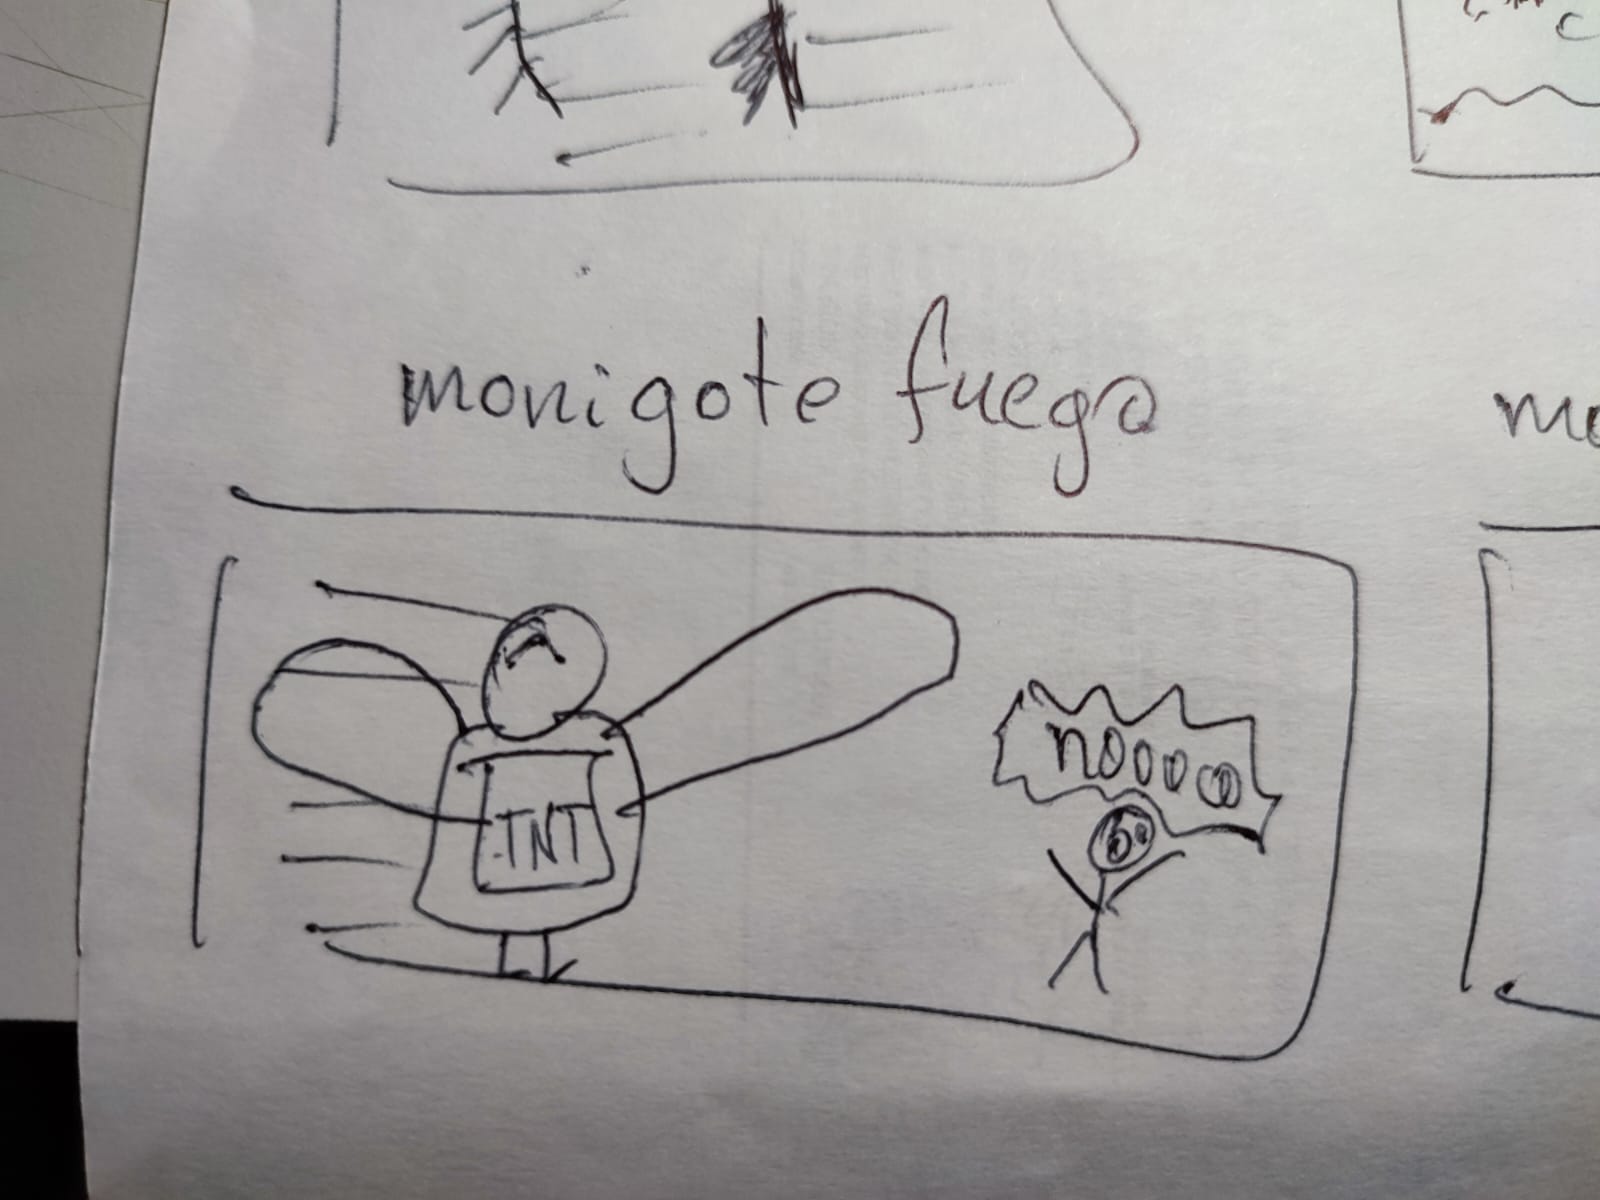 monigote fuego
TNT
nooooo